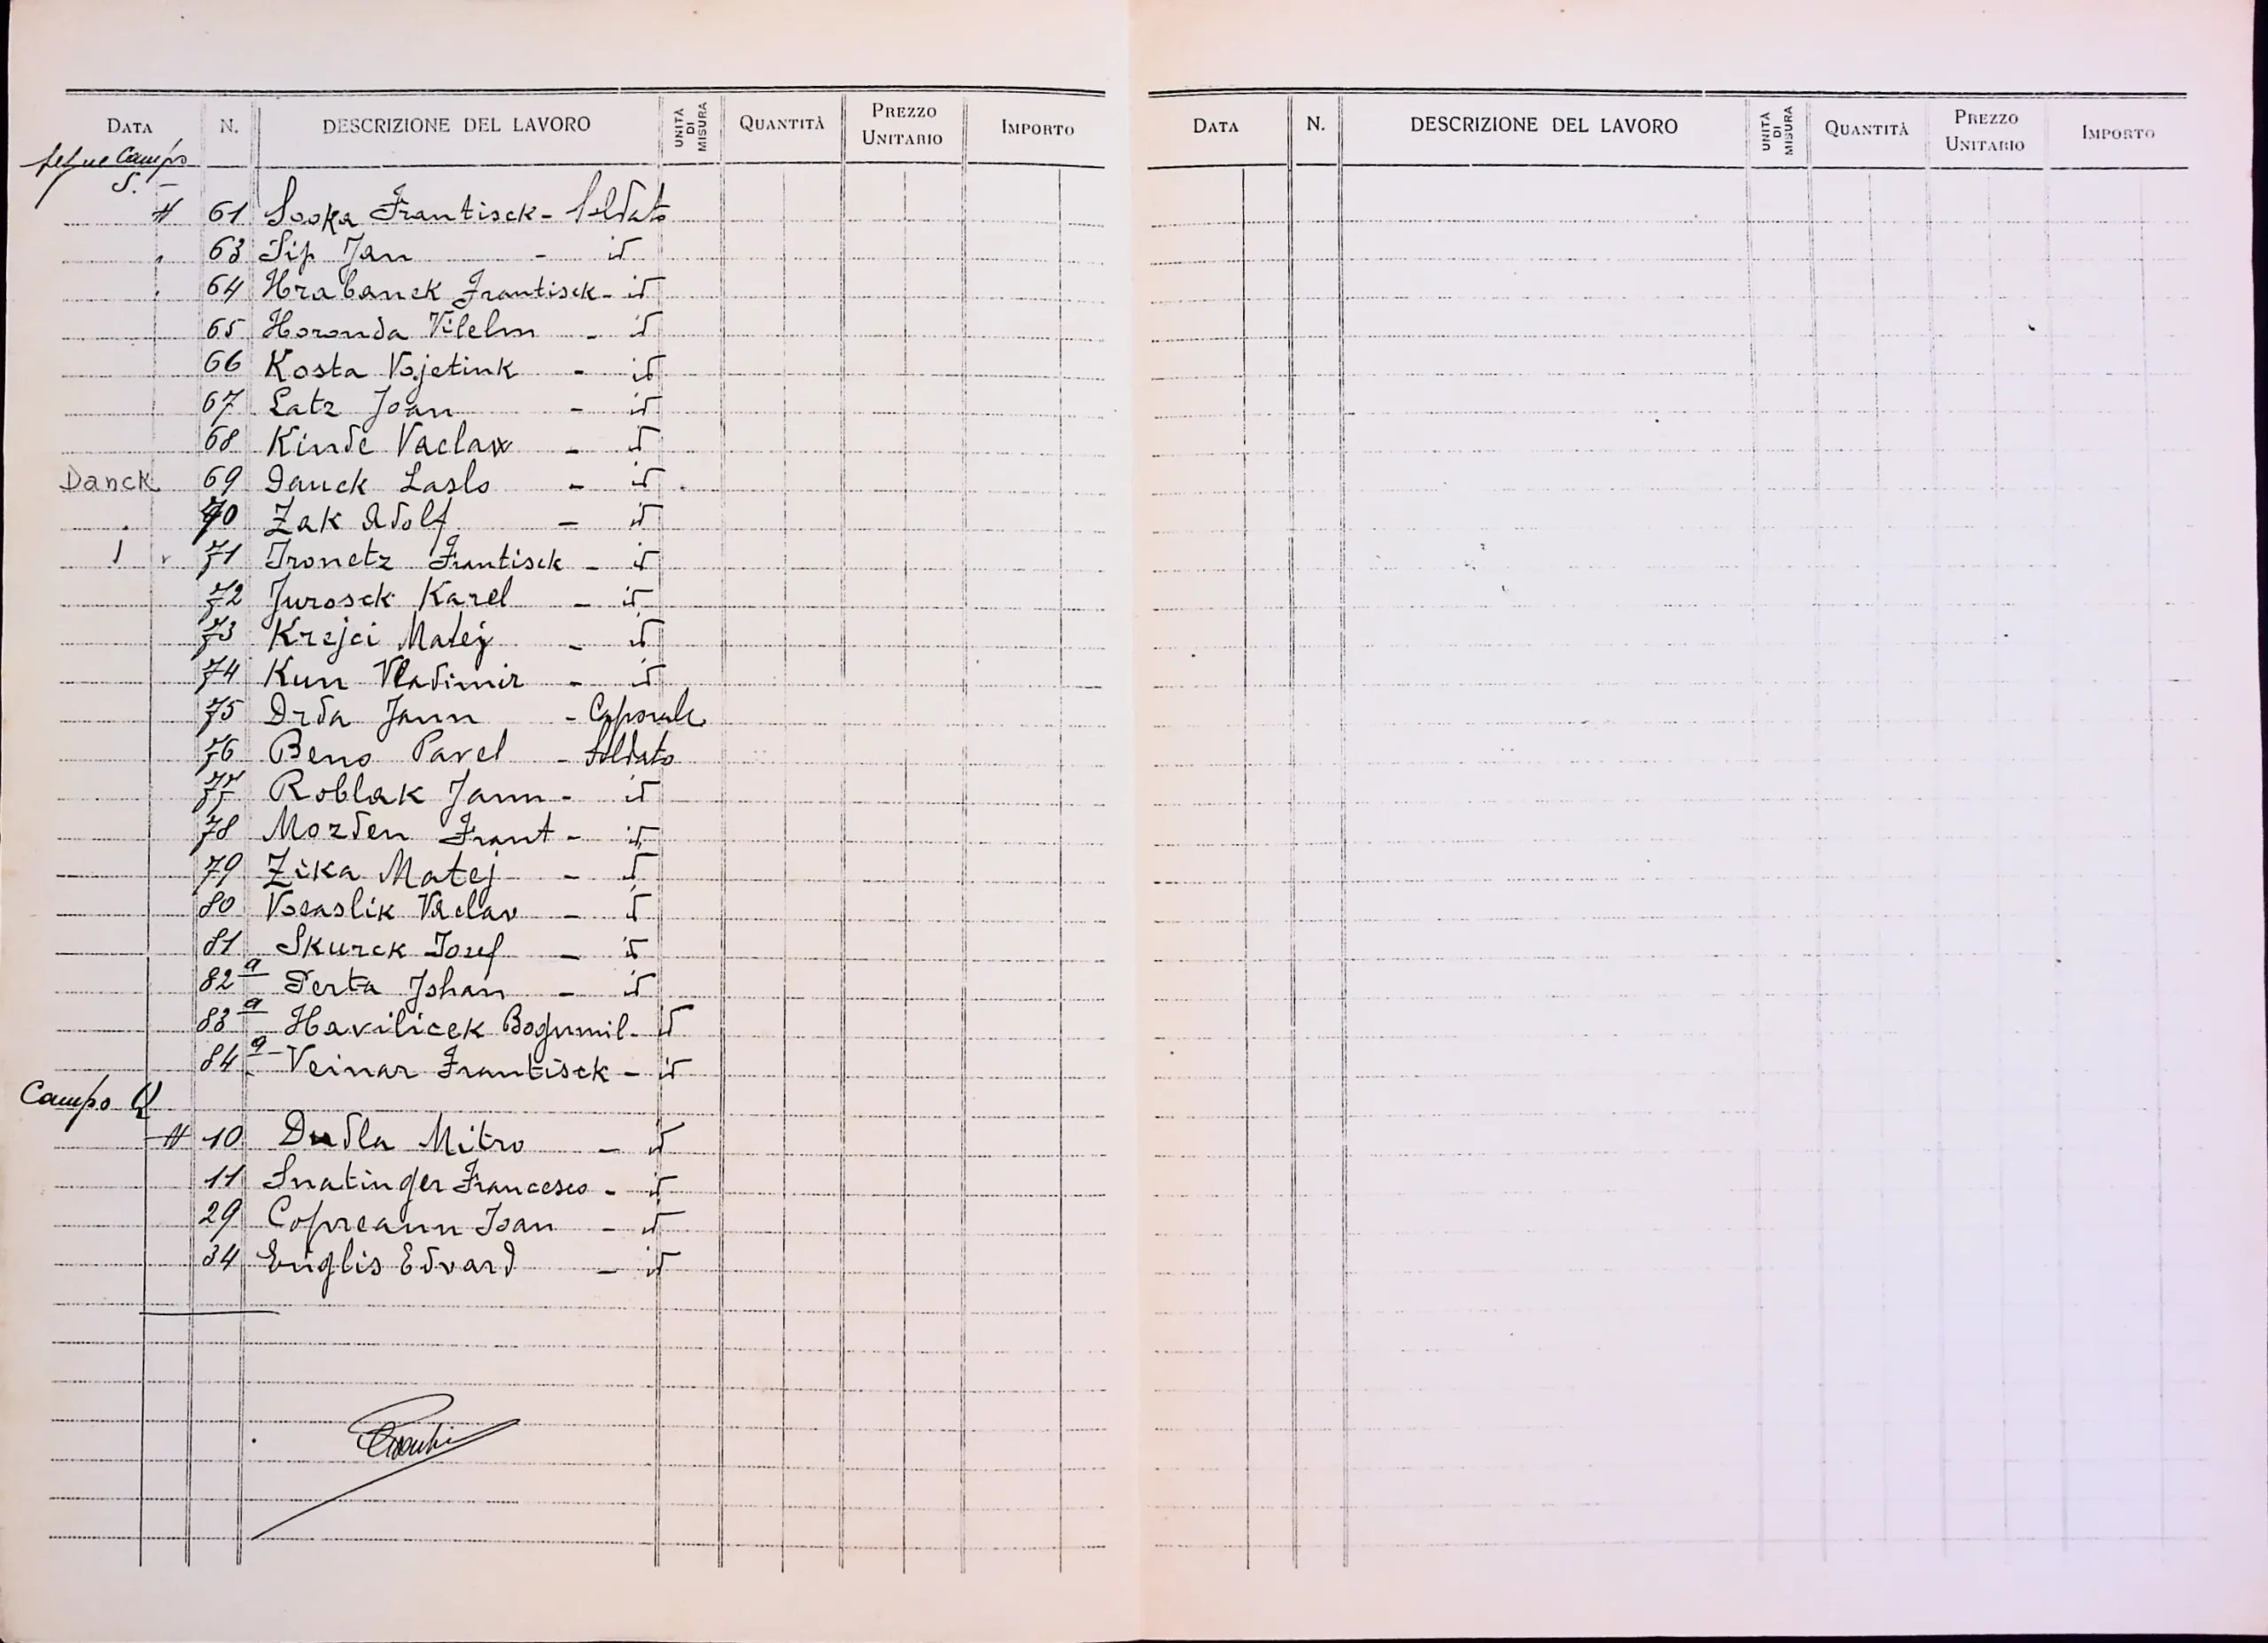 DATA N. DESCRIZIONE DEL LAVORO UNITÀ DI MISURA QUANTITÀ PREZZO UNITARIO IMPORTO
segue Campo
S. -
# 61 Sooka Frantisek - Soldato
63 Sip Jan - id
64 Hrabanek Frantisek - id
65 Horonda Vilelm - id
66 Kosta Vojetink - id
67 Latz Joan - id
68 Kinde Vaclav - id
Danek 69 Danek Laslo - id
70 Zak Adolf - id
71 Tronetz Frantisek - id
72 Jurosek Karel - id
73 Krejci Matej - id
74 Kun Vladimir - id
75 Drda Jann - Caporale
76 Beno Pavel - Soldato
77 Roblak Jann - id
78 Mozden Frant - id
79 Zika Matej - id
80 Voeaslik Vaclav - id
81 Skurek Josef - id
82 a Perta Johan - id
83 a Havilicek Bogumil - id
84 a Veinar Frantisek - id
Campo Q
# 10 Dudla Mitro - id
11 Snatinger Francesco - id
29 Copreann Joan - id
34 Englis Edvard - id
DATA N. DESCRIZIONE DEL LAVORO UNITÀ DI MISURA QUANTITÀ PREZZO UNITARIO IMPORTO